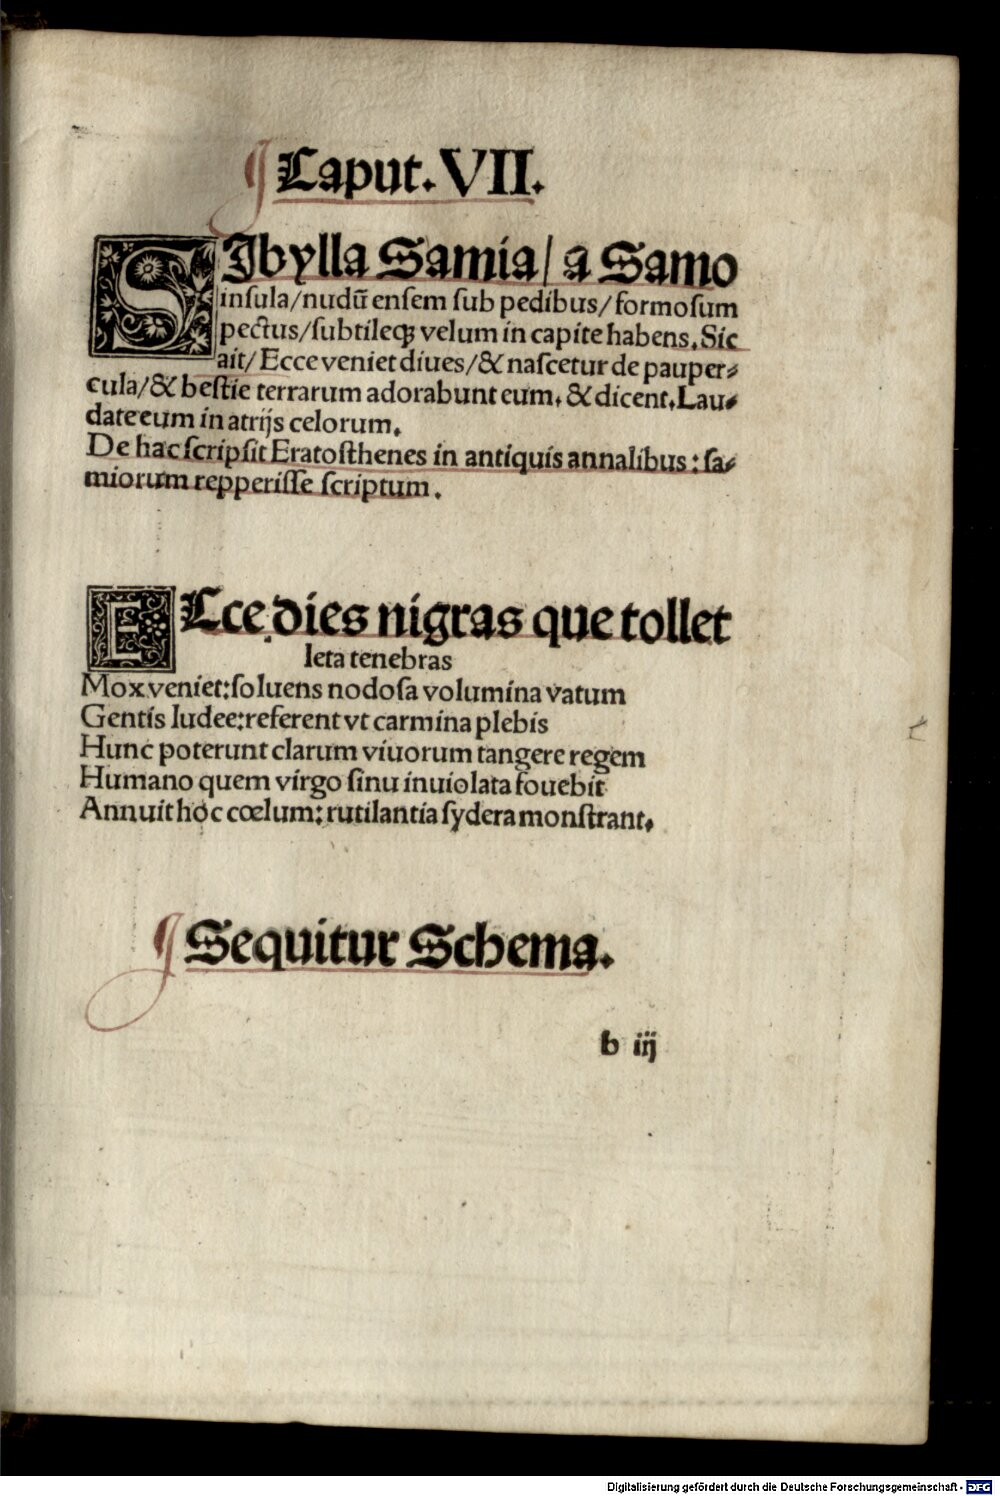 ¶ Caput. VII.
SIbylla Samia/ a Samo
insula/nudū ensem sub pedibus/formosum
pectus/subtileqꝫ velum in capite habens. Sic
ait/ Ecce veniet diues/& nascetur de pauper⸗
cula/& bestie terrarum adorabunt eum. & dicent. Lau⸗
date eum in atrijs celorum.
De hac scripsit Eratosthenes in antiquis annalibus: sa⸗
miorum repperisse scriptum.
ECce dies nigras que tollet
leta tenebras
Mox veniet: soluens nodosa volumina vatum
Gentis Iudee: referent vt carmina plebis
Hunc poterunt clarum viuorum tangere regem
Humano quem virgo sinu inuiolata fouebit
Annuit hoc cœlum: rutilantia sydera monstrant.
¶ Sequitur Schema.
b iij
Digitalisierung gefördert durch die Deutsche Forschungsgemeinschaft - DFG